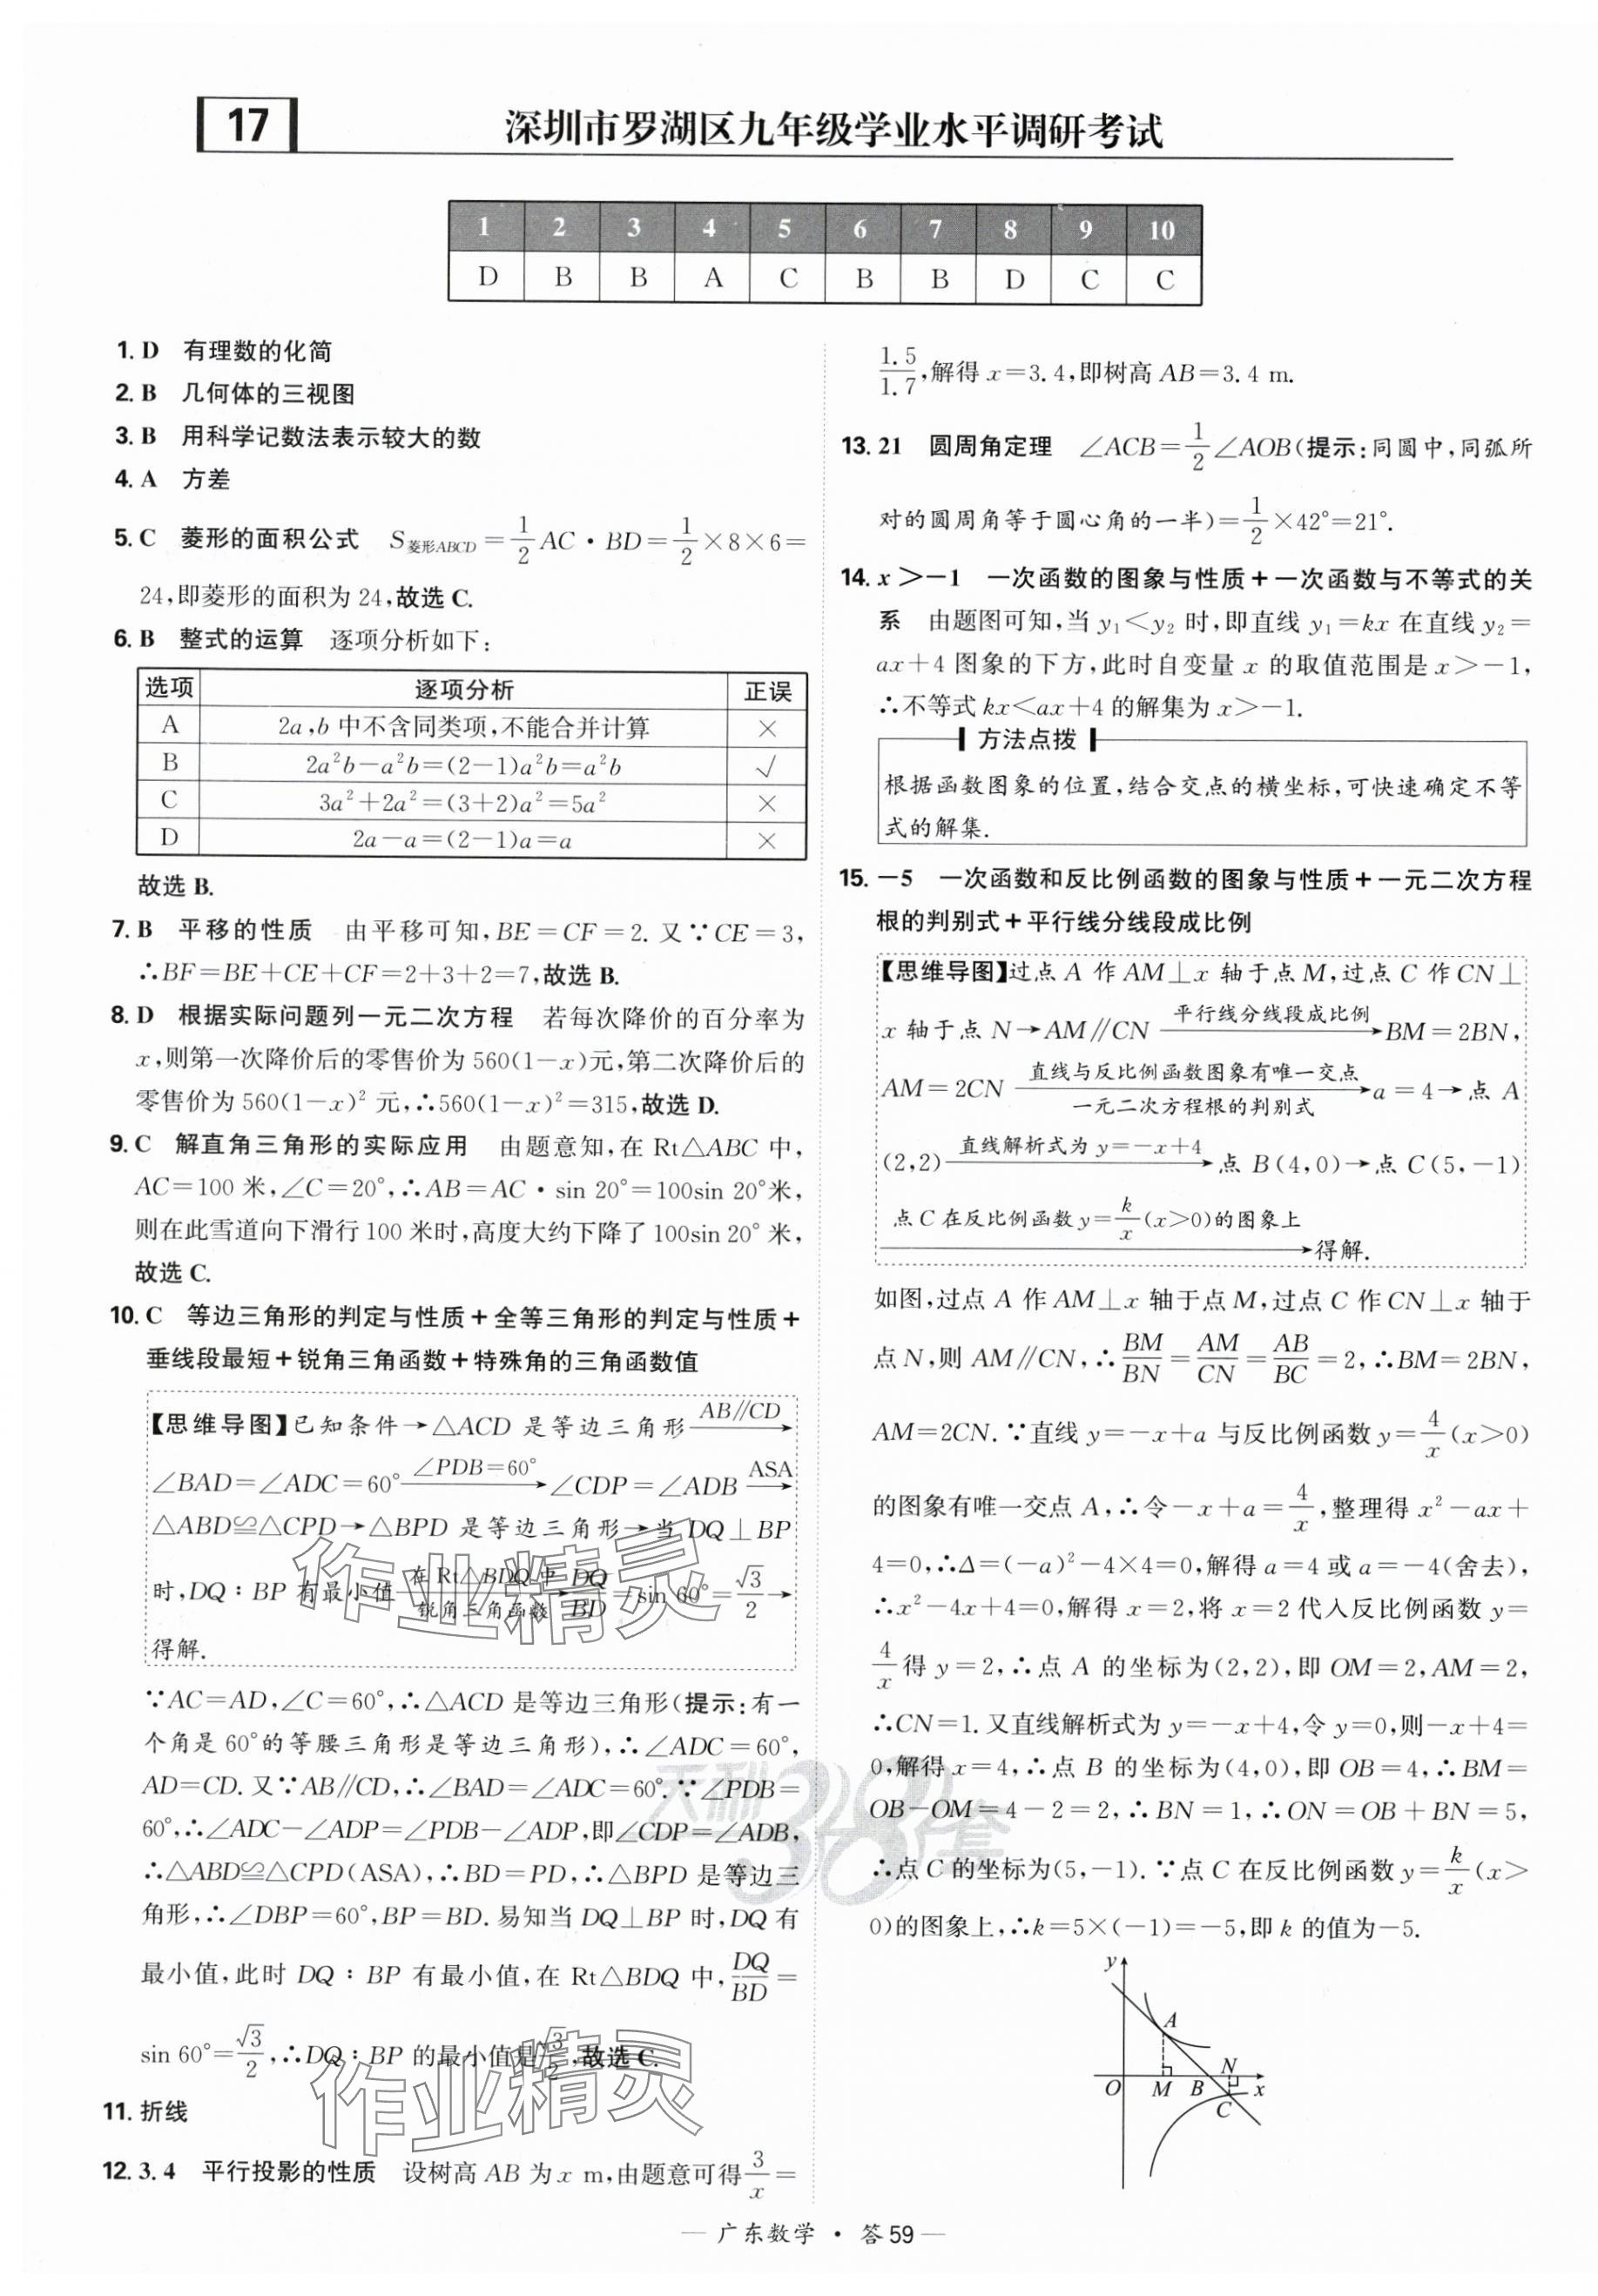 17
深圳市罗湖区九年级学业水平调研考试
1 2 3 4 5 6 7 8 9 10
D B B A C B B D C C
1. D 有理数的化简
2. B 几何体的三视图
3. B 用科学记数法表示较大的数
4. A 方差
5. C 菱形的面积公式 S菱形ABCD=1/2 AC·BD=1/2×8×6=
24,即菱形的面积为24,故选C.
6. B 整式的运算 逐项分析如下:
选项 逐项分析 正误
A 2a,b中不含同类项,不能合并计算 ×
B 2a²b-a²b=(2-1)a²b=a²b √
C 3a²+2a²=(3+2)a²=5a² ×
D 2a-a=(2-1)a=a ×
故选B.
7. B 平移的性质 由平移可知,BE=CF=2.又∵CE=3,
∴BF=BE+CE+CF=2+3+2=7,故选B.
8. D 根据实际问题列一元二次方程 若每次降价的百分率为
x,则第一次降价后的零售价为560(1-x)元,第二次降价后的
零售价为560(1-x)²元,∴560(1-x)²=315,故选D.
9. C 解直角三角形的实际应用 由题意知,在Rt△ABC中,
AC=100米,∠C=20°,∴AB=AC·sin 20°=100sin 20°米,
则在此雪道向下滑行100米时,高度大约下降了100sin 20°米,
故选C.
10. C 等边三角形的判定与性质+全等三角形的判定与性质+
垂线段最短+锐角三角函数+特殊角的三角函数值
【思维导图】已知条件→△ACD是等边三角形 AB∥CD→
∠BAD=∠ADC=60° ∠PDB=60°→∠CDP=∠ADB ASA→
△ABD≌△CPD→△BPD是等边三角形→当DQ⊥BP
时,DQ:BP有最小值 在Rt△BDQ中 锐角三角函数→DQ/BD=sin 60°=√3/2→
得解.
∵AC=AD,∠C=60°,∴△ACD是等边三角形(提示:有一
个角是60°的等腰三角形是等边三角形),∴∠ADC=60°,
AD=CD.又∵AB∥CD,∴∠BAD=∠ADC=60°.∵∠PDB=
60°,∴∠ADC-∠ADP=∠PDB-∠ADP,即∠CDP=∠ADB,
∴△ABD≌△CPD(ASA),∴BD=PD,∴△BPD是等边三
角形,∴∠DBP=60°,BP=BD.易知当DQ⊥BP时,DQ有
最小值,此时DQ:BP有最小值,在Rt△BDQ中,DQ/BD=
sin 60°=√3/2,∴DQ:BP的最小值是√3/2,故选C.
11. 折线
12. 3.4 平行投影的性质 设树高AB为x m,由题意可得3/x=
1.5/1.7,解得x=3.4,即树高AB=3.4 m.
13. 21 圆周角定理 ∠ACB=1/2∠AOB(提示:同圆中,同弧所
对的圆周角等于圆心角的一半)=1/2×42°=21°.
14. x>-1 一次函数的图象与性质+一次函数与不等式的关
系 由题图可知,当y₁<y₂时,即直线y₁=kx在直线y₂=
ax+4图象的下方,此时自变量x的取值范围是x>-1,
∴不等式kx<ax+4的解集为x>-1.
方法点拨
根据函数图象的位置,结合交点的横坐标,可快速确定不等
式的解集.
15. -5 一次函数和反比例函数的图象与性质+一元二次方程
根的判别式+平行线分线段成比例
【思维导图】过点A作AM⊥x轴于点M,过点C作CN⊥
x轴于点N→AM∥CN 平行线分线段成比例→BM=2BN,
AM=2CN 直线与反比例函数图象有唯一交点 一元二次方程根的判别式→a=4→点A
(2,2) 直线解析式为y=-x+4→点B(4,0)→点C(5,-1)
点C在反比例函数y=k/x(x>0)的图象上→得解.
如图,过点A作AM⊥x轴于点M,过点C作CN⊥x轴于
点N,则AM∥CN,∴BM/BN=AM/CN=AB/BC=2,∴BM=2BN,
AM=2CN.∵直线y=-x+a与反比例函数y=4/x(x>0)
的图象有唯一交点A,∴令-x+a=4/x,整理得x²-ax+
4=0,∴Δ=(-a)²-4×4=0,解得a=4或a=-4(舍去),
∴x²-4x+4=0,解得x=2,将x=2代入反比例函数y=
4/x得y=2,∴点A的坐标为(2,2),即OM=2,AM=2,
∴CN=1.又直线解析式为y=-x+4,令y=0,则-x+4=
0,解得x=4,∴点B的坐标为(4,0),即OB=4,∴BM=
OB-OM=4-2=2,∴BN=1,∴ON=OB+BN=5,
∴点C的坐标为(5,-1).∵点C在反比例函数y=k/x(x>
0)的图象上,∴k=5×(-1)=-5,即k的值为-5.
y
A
N
O M B x
C
作业精灵
天利38套
作业精灵
— 广东数学 · 答59 —